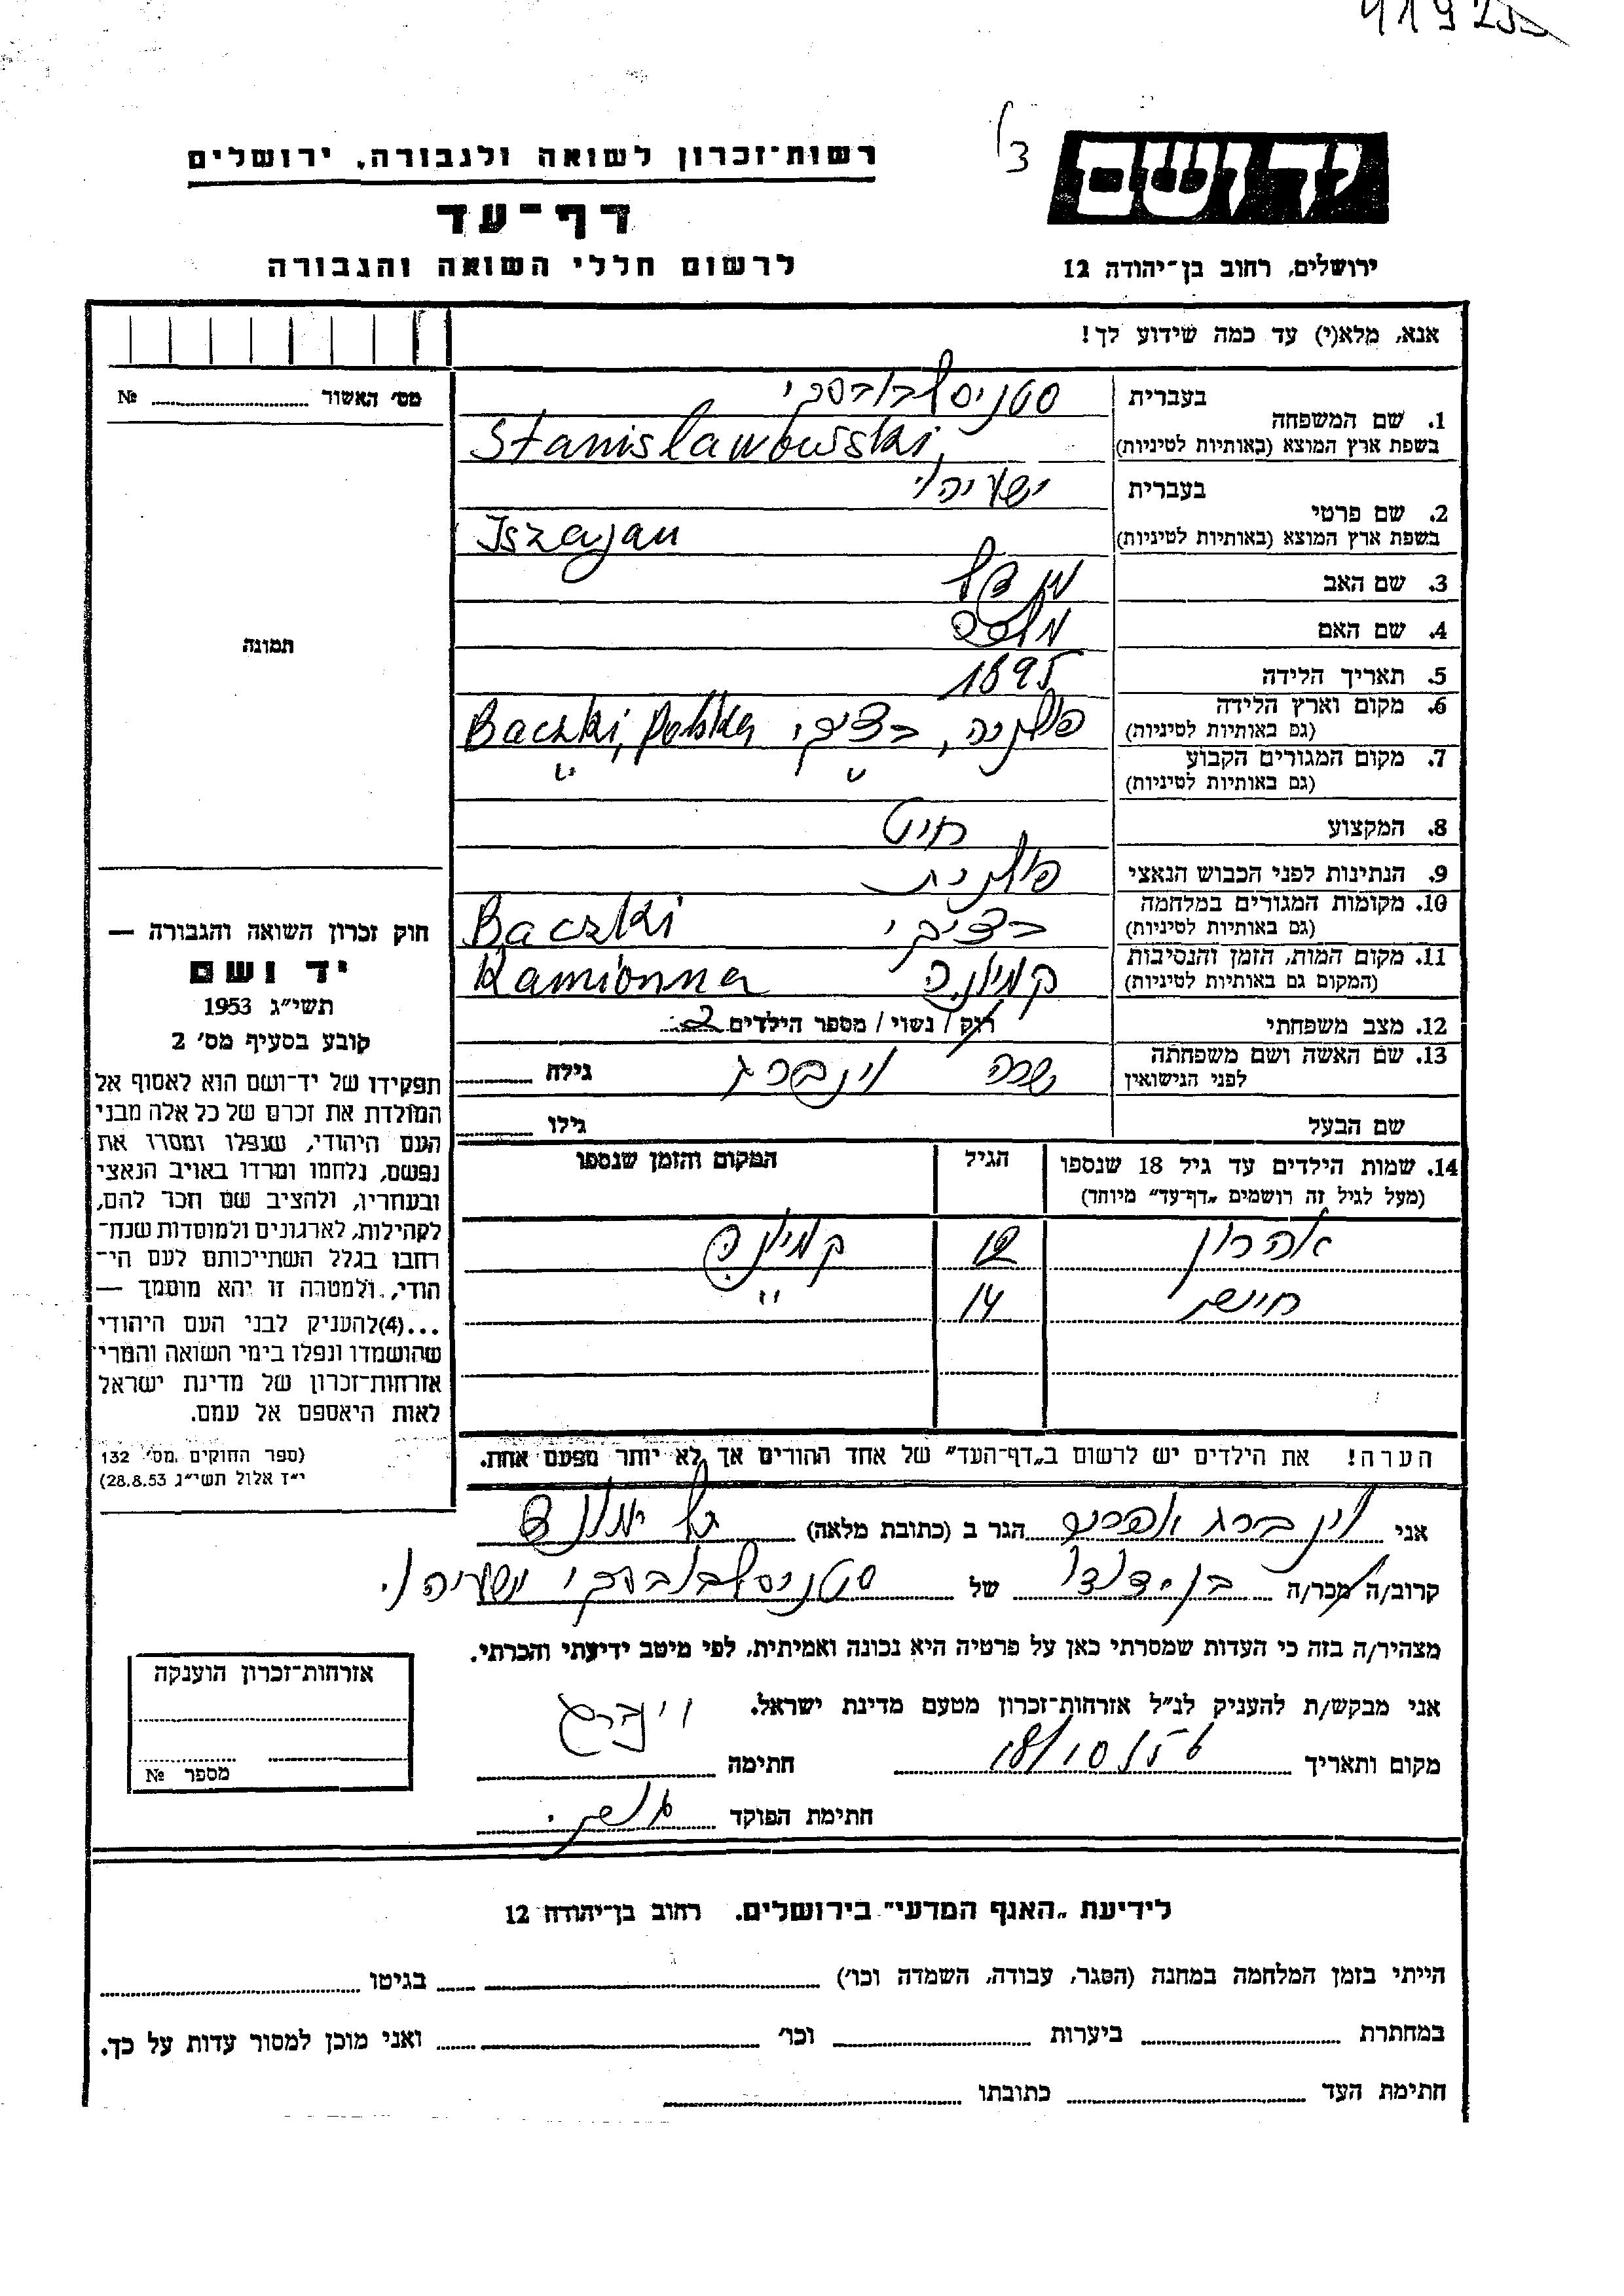 ל3
יד ושם
רשות־זכרון לשואה ולגבורה, ירושלים
דף־עד
לרשום חללי השואה והגבורה
ירושלים, רחוב בן־יהודה 12
אנא, מלא(י) עד כמה שידוע לך!
מס' האשור № ........
1. שם המשפחה בעברית סטניסלבובסקי
בשפת ארץ המוצא (באותיות לטיניות) Stanisławowski
2. שם פרטי בעברית ישעיהו
בשפת ארץ המוצא (באותיות לטיניות) Iszajau
3. שם האב
4. שם האם
5. תאריך הלידה 1895
6. מקום וארץ הלידה (גם באותיות לטיניות) פולניה, בצקי Baczki, Polska
7. מקום המגורים הקבוע (גם באותיות לטיניות) " "
8. המקצוע חייט
9. הנתינות לפני הכבוש הנאצי פולנית
10. מקומות המגורים במלחמה (גם באותיות לטיניות) בצקי Baczki
11. מקום המות, הזמן והנסיבות (המקום גם באותיות לטיניות) קמיונה Kamionna
12. מצב משפחתי רוק / נשוי / מספר הילדים 2
13. שם האשה ושם משפחתה לפני הנישואין שרה וינברג גילה ........
שם הבעל גילו ........
14. שמות הילדים עד גיל 18 שנספו (מעל לגיל זה רושמים „דף־עד" מיוחד) הגיל המקום והזמן שנספו
אהרון 12 קמיונה
14 "
הערה! את הילדים יש לרשום ב„דף־העד" של אחד ההורים אך לא יותר מפעם אחת.
תמונה
חוק זכרון השואה והגבורה —
יד ושם
תשי״ג 1953
קובע בסעיף מס' 2
תפקידו של יד־ושם הוא לאסוף אל
המולדת את זכרם של כל אלה מבני
העם היהודי, שנפלו ומסרו את
נפשם, נלחמו ומרדו באויב הנאצי
ובעוזריו, ולהציב שם וזכר להם,
לקהילות, לארגונים ולמוסדות שנח־
רבו בגלל השתייכותם לעם הי־
הודי, ולמטרה זו יהא מוסמך —
...(4)להעניק לבני העם היהודי
שהושמדו ונפלו בימי השואה והמרי
אזרחות־זכרון של מדינת ישראל
לאות היאספם אל עמם.
(ספר החוקים מס' 132
י״ז אלול תשי״ג 28.8.53)
אני וינברג אפרים הגר ב (כתובת מלאה)
קרוב/ה מכר/ה בן-דודו של סטניסלבובסקי ישעיהו.
מצהיר/ה בזה כי העדות שמסרתי כאן על פרטיה היא נכונה ואמיתית, לפי מיטב ידיעתי והכרתי.
אני מבקש/ת להעניק לנ״ל אזרחות־זכרון מטעם מדינת ישראל.
מקום ותאריך 18/10/56 חתימה וינברג
חתימת הפוקד
אזרחות־זכרון הוענקה
מספר №
לידיעת „האגף המדעי" בירושלים. רחוב בן־יהודה 12
הייתי בזמן המלחמה במחנה (הסגר, עבודה, השמדה וכו') ........ בגיטו ........
במחתרת ........ ביערות ........ וכו' ........ ואני מוכן למסור עדות על כך.
חתימת העד ........ כתובתו ........